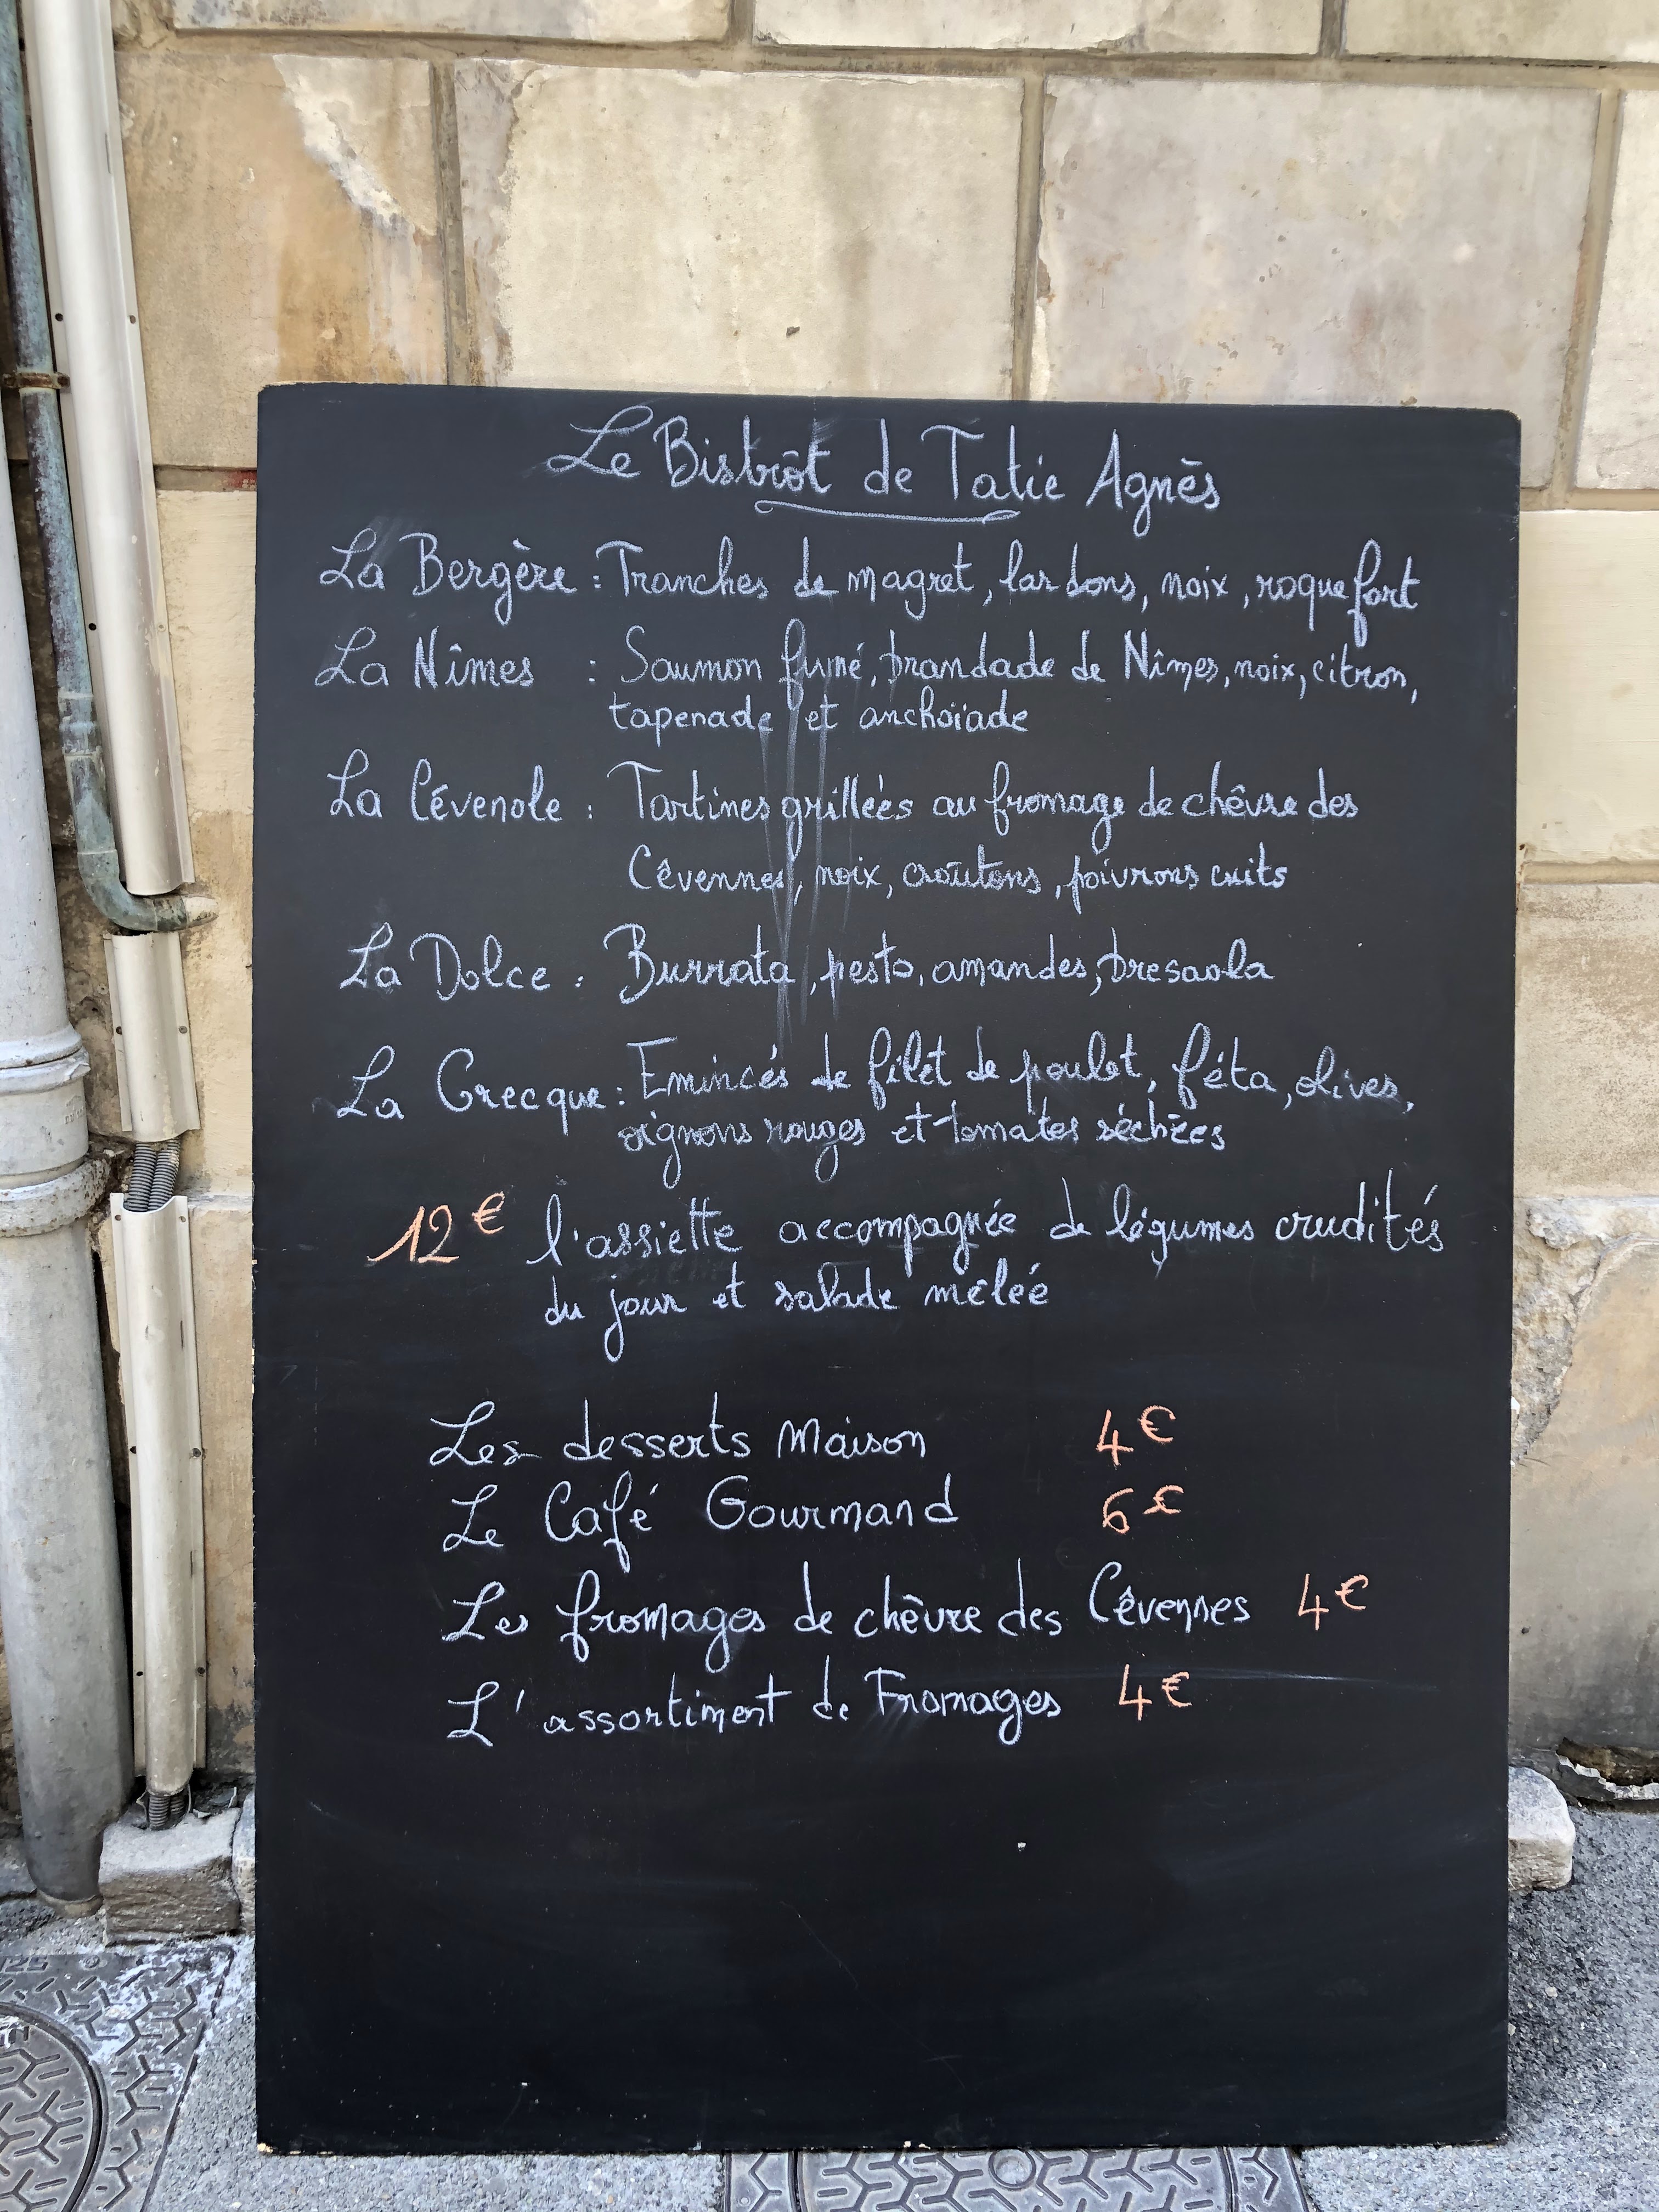 Le Bistrôt de Tatie Agnès
La Bergère : Tranches de magret, lardons, noix, roquefort
La Nîmes : Saumon fumé, brandade de Nîmes, noix, citron,
tapenade et anchoïade
La Cévenole : Tartines grillées au fromage de chêvre des
Cêvennes, noix, croûtons, poivrons cuits
La Dolce : Burrata, pesto, amandes, bresaola
La Grecque : Emincés de filet de poulet, féta, olives,
oignons rouges et tomates séchées
12€ l'assiette accompagnée de légumes crudités
du jour et salade mêlée
Les desserts Maison 4€
Le Café Gourmand 6€
Les fromages de chêvre des Cêvennes 4€
L'assortiment de Fromages 4€